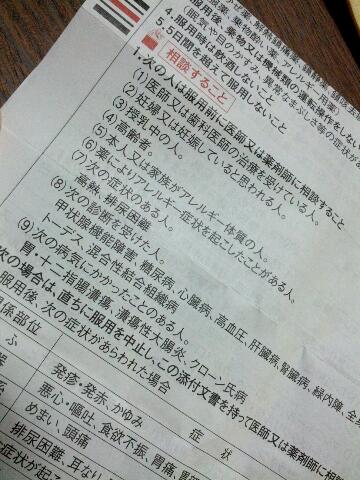 服用後、乗物又は機械類の運転操作をしない
4.服用時は飲酒しないこと
5.5日間を超えて服用しないこと
相談すること
1.次の人は服用前に医師又は薬剤師に相談すること
(1)医師又は歯科医師の治療を受けている人。
(2)妊婦又は妊娠していると思われる人。
(3)授乳中の人。
(4)高齢者。
(5)本人又は家族がアレルギー体質の人。
(6)薬によりアレルギー症状を起こしたことがある人。
(7)次の症状のある人。
高熱、排尿困難
(8)次の診断を受けた人。
甲状腺機能障害、糖尿病、心臓病、高血圧、肝臓病、腎臓病、緑内障、全身
トーデス、混合性結合組織病
(9)次の病気にかかったことのある人。
胃・十二指腸潰瘍、潰瘍性大腸炎、クローン氏病
次の場合は、直ちに服用を中止し、この添付文書を持って医師又は薬剤師に相談
服用後、次の症状があらわれた場合
関係部位 症状
ふ 発疹・発赤、かゆみ
悪心・嘔吐、食欲不振、胃痛、胃
めまい、頭痛
排尿困難、耳なり